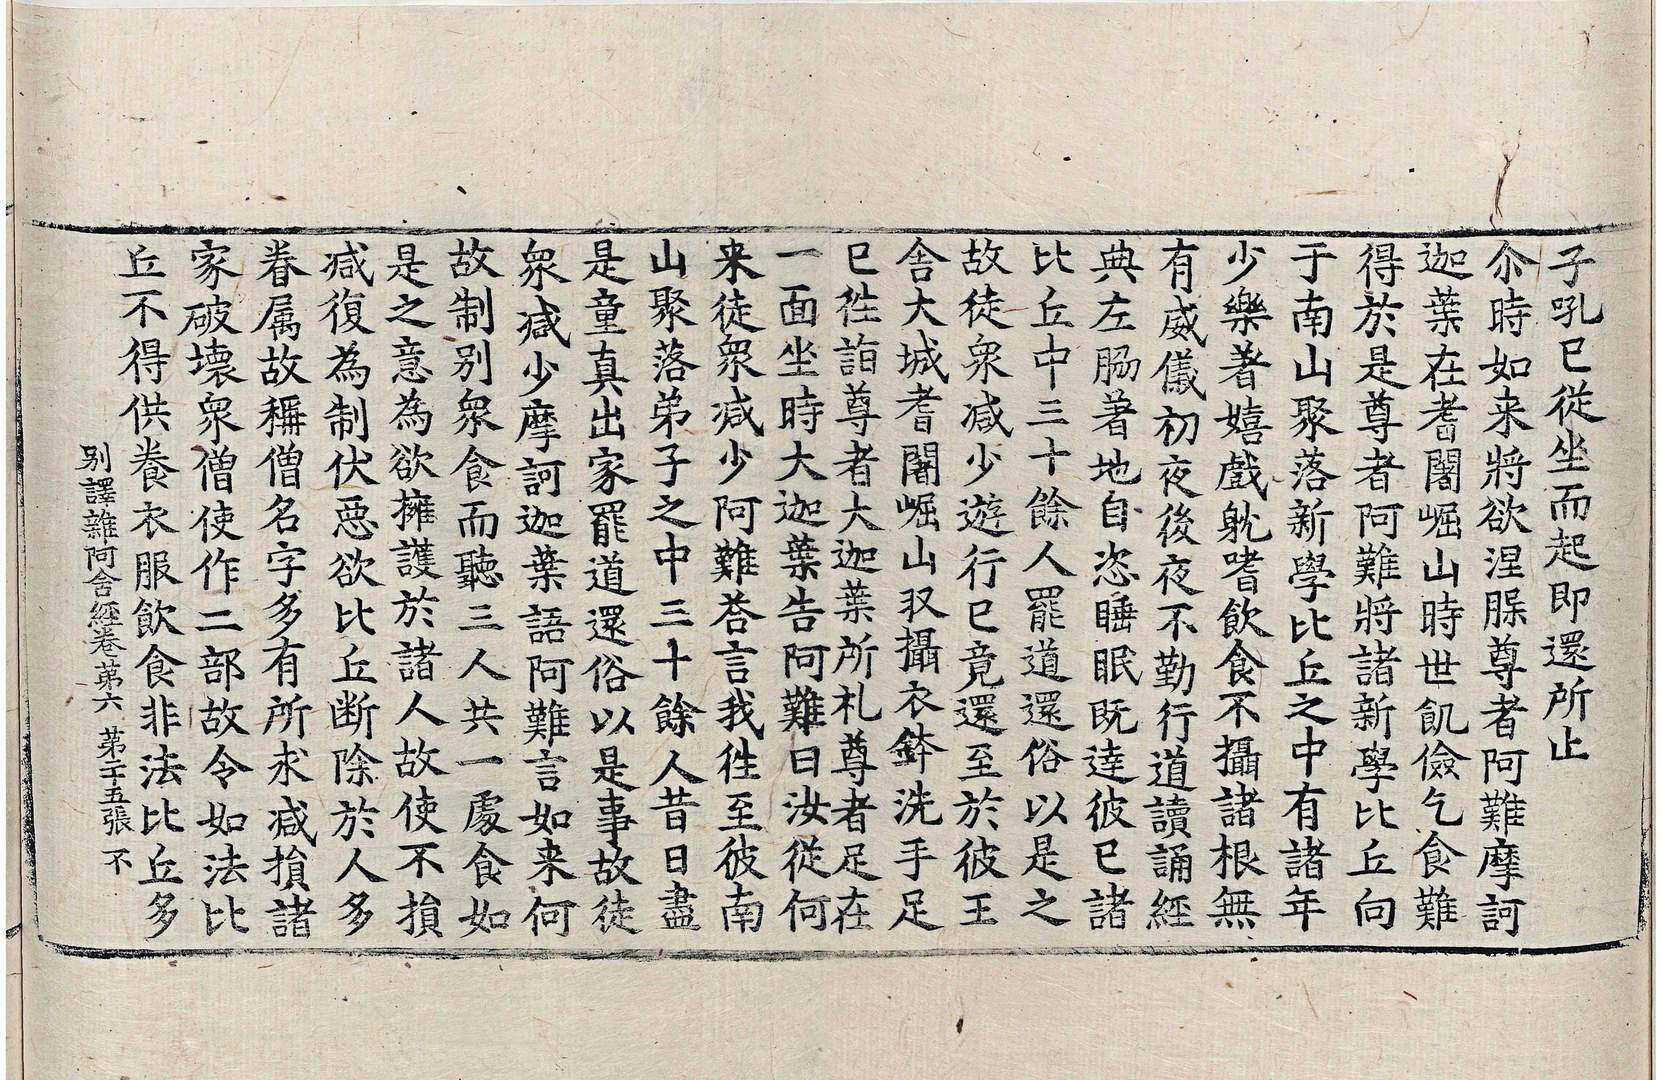 子吼已從坐而起即還所止
尒時如来將欲涅䏶尊者阿難摩訶
迦葉在耆闍崛山時世飢儉乞食難
得於是尊者阿難將諸新學比丘向
于南山聚落新學比丘之中有諸年
少樂著嬉戲躭嗜飲食不攝諸根無
有威儀初夜後夜不勤行道讀誦經
典左脇著地自恣睡眠既達彼已諸
比丘中三十餘人罷道還俗以是之
故徒衆减少遊行已竟還至於彼王
舍大城耆闍崛山収攝衣鉢洗手足
已徃詣尊者大迦葉所礼尊者足在
一面坐時大迦葉告阿難曰汝從何
来徒衆减少阿難荅言我徃至彼南
山聚落弟子之中三十餘人昔日盡
是童真出家罷道還俗以是事故徒
衆减少摩訶迦葉語阿難言如来何
故制别衆食而聽三人共一處食如
是之意為欲擁護於諸人故使不損
减復為制伏惡欲比丘断除於人多
眷属故稱僧名字多有所求减損諸
家破壊衆僧使作二部故令如法比
丘不得供養衣服飲食非法比丘多
别譯雜阿含經卷第六 第二十五張 不